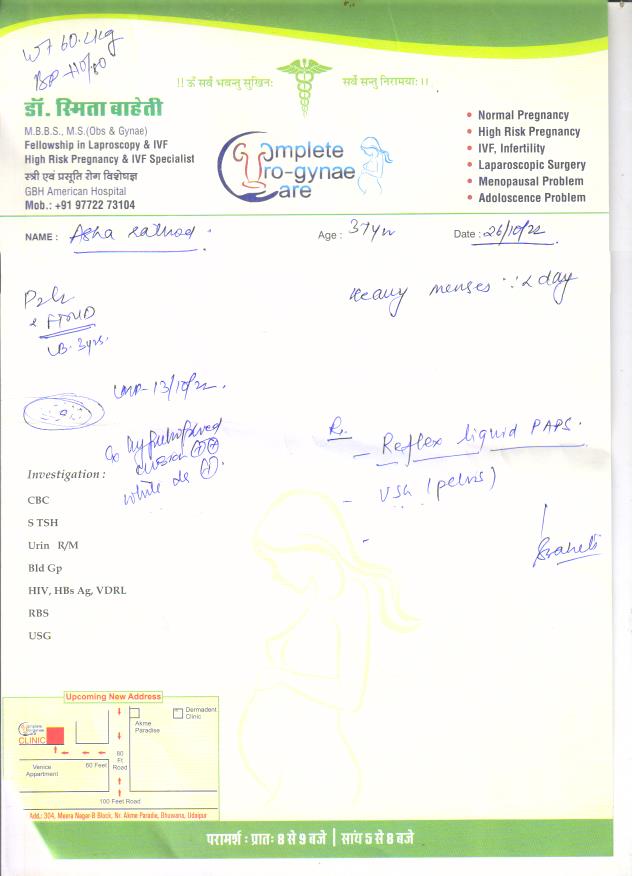 Wt 60.4kg
BP-110/80
!! ॐ सर्वे भवन्तु सुखिनः
सर्वे सन्तु निरामयाः ।।
डॉ. स्मिता बाहेती
M.B.B.S., M.S.(Obs & Gynae)
Fellowship in Laproscopy & IVF
High Risk Pregnancy & IVF Specialist
स्त्री एवं प्रसूति रोग विशेषज्ञ
GBH American Hospital
Mob.: +91 97722 73104
Complete
Uro-gynae
Care
• Normal Pregnancy
• High Risk Pregnancy
• IVF, Infertility
• Laparoscopic Surgery
• Menopausal Problem
• Adoloscence Problem
NAME : Asha Age : 37yr Date : 26/10/22
P2L2
FTNVD
LB. 3yrs.
Heavy menses 2 day
LMP-13/10/22.
erosion
white dis
Rx
- Reflex liquid PAPS.
- USG (pelvis)
-
Investigation :
CBC
S TSH
Urin R/M
Bld Gp
HIV, HBs Ag, VDRL
RBS
USG
Upcoming New Address
Complete
Uro-gynae
Care
CLINIC
Akme
Paradise
Dermadent
Clinic
Venice
Appartment
60 Feet
80
Ft
Road
100 Feet Road
Add.: 304, Meera Nagar-B Block, Nr. Akme Paradie, Bhuwana, Udaipur
परामर्श : प्रातः 8 से 9 बजे | सांय 5 से 8 बजे